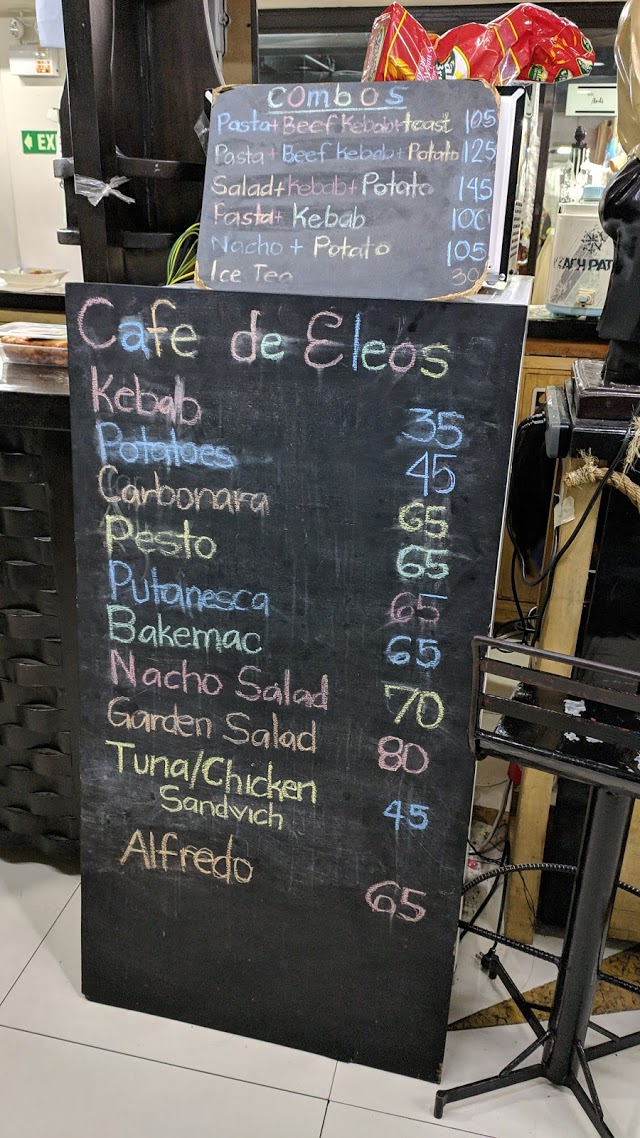 EX
combos
Pasta+Beef Kebab+toast 105
Pasta+Beef Kebab+Potato 125
Salad+Kebab+Potato 145
Pasta+Kebab 100
Nacho + Potato 105
Ice Tea 30
Cafe de Eleos
Kebab 35
Potatoes 45
Carbonara 65
Pesto 65
Putanesca 65
Bakemac 65
Nacho Salad 70
Garden Salad 80
Tuna/Chicken
Sandwich 45
Alfredo 65